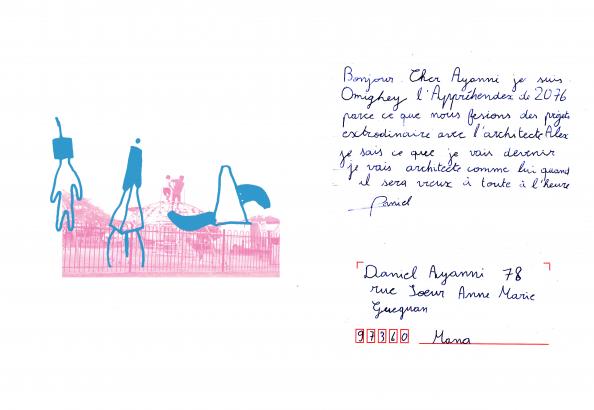 Bonjour Cher Ayanni je suis
Omighey l'Appréhendex de 2076
parce ce que nous fesions des projets
extrodinaire avec l'architecte Alex
je sais ce que je vais devenir
je vais architecte comme lui quand
il sera vieux à toute à l'heure
Daniel
Daniel Ayanni 78
rue Soeur Anne Marie
Guéguan
97360 Mana